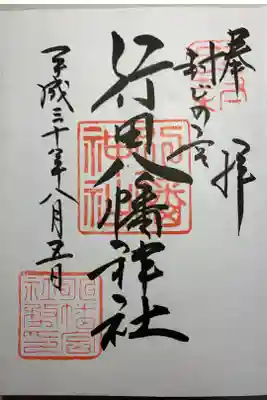 奉拝
封じの宮
行田八幡神社
八幡神社
平成三十年八月五日